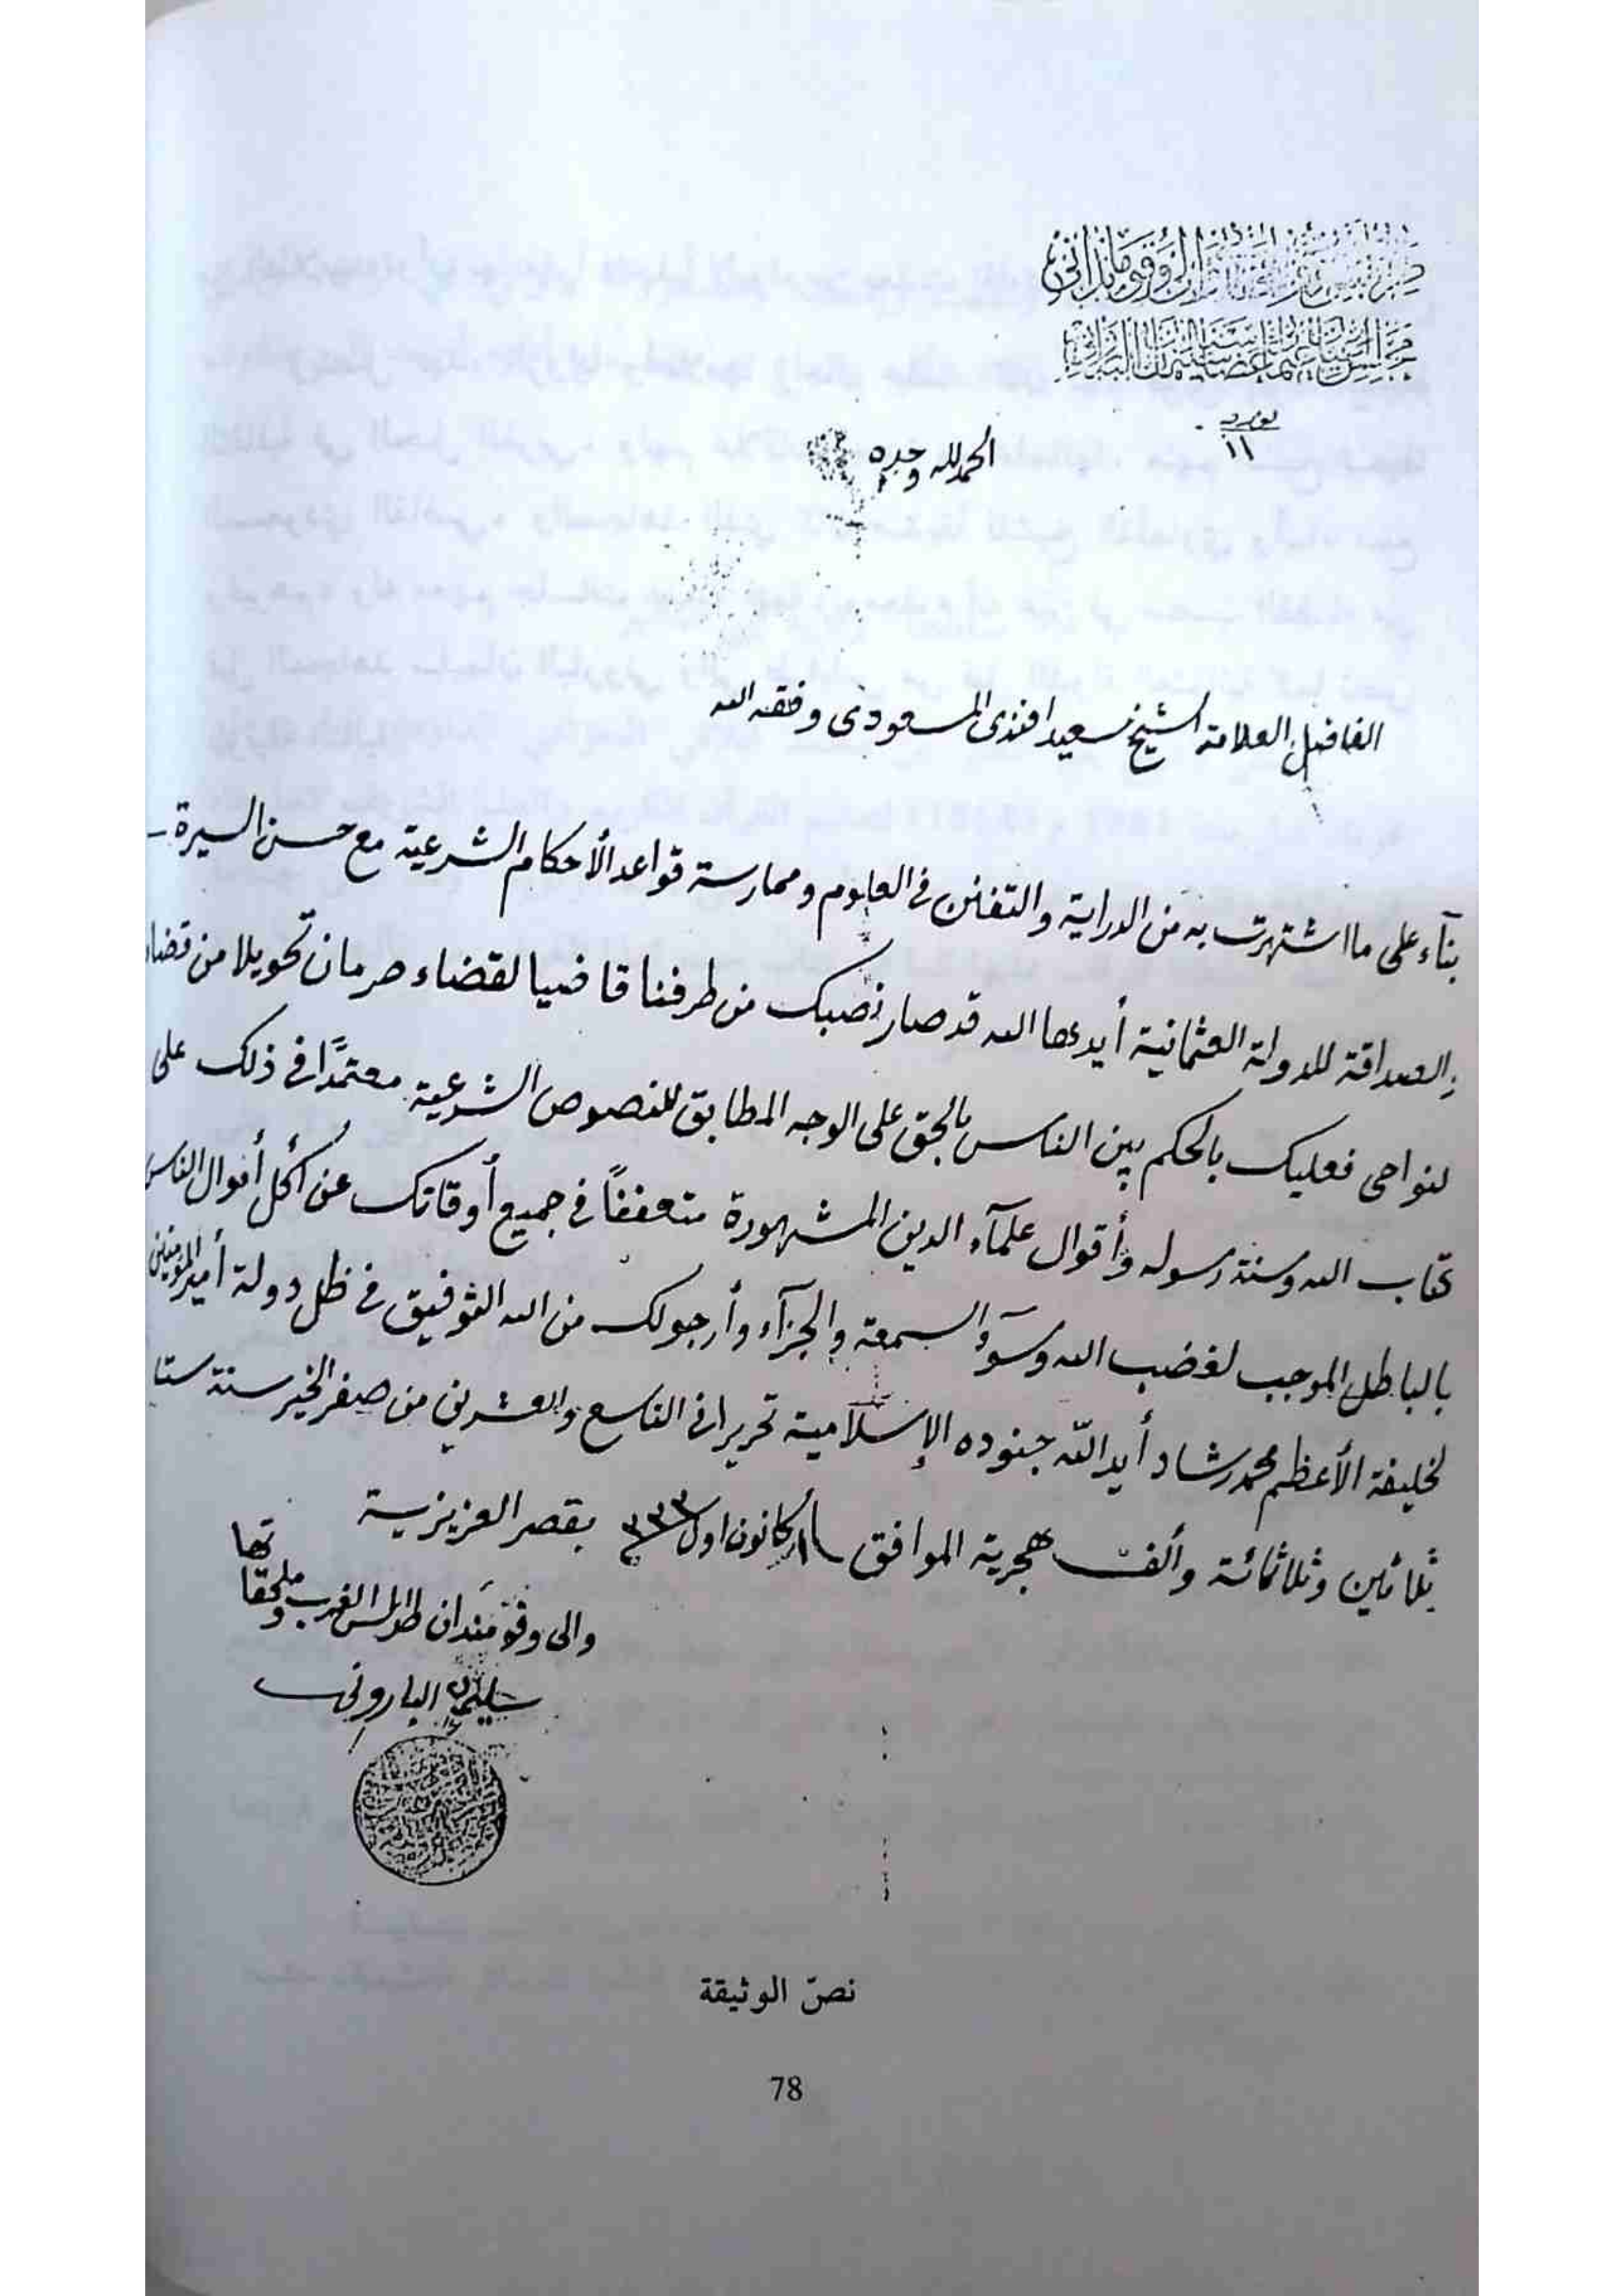 نومرو
١١
الحمد لله وحده
الفاضل العلامة الشيخ سعيد افندى المسعودى وفقه الله
بنآء على ما اشتهرت به من الدراية والتفنن فى العلوم وممارسة قواعد الأحكام الشرعية مع حسن السيرة
والصداقة للدولة العثمانية أيدها الله قد صار نصبك من طرفنا قاضيا لقضاء صرمان تحويلا من قضاء
لنواحى فعليك بالحكم بين الناس بالحق على الوجه المطابق للنصوص الشرعية معتمدًا فى ذلك على
كتاب الله وسنة رسوله وأقوال علمآء الدين المشهورة متعففاً فى جميع أوقاتك عن أكل أموال الناس
بالباطل الموجب لغضب الله وسوء السمعة والجزآء وأرجو لك من الله التوفيق فى ظل دولة أمير المؤمنين
لخليفة الأعظم محمد رشاد أيد الله جنوده الإسلامية تحريرا فى التاسع والعشرين من صفر الخير سنة ستة
ثلاثين وثلاثمائة وألف هجرية الموافق كانون اول ٣٣٣ بقصر العزيزية
والى وقومندان طرابلس الغرب وملحقاتها
سليمان البارونى
نصّ الوثيقة
78